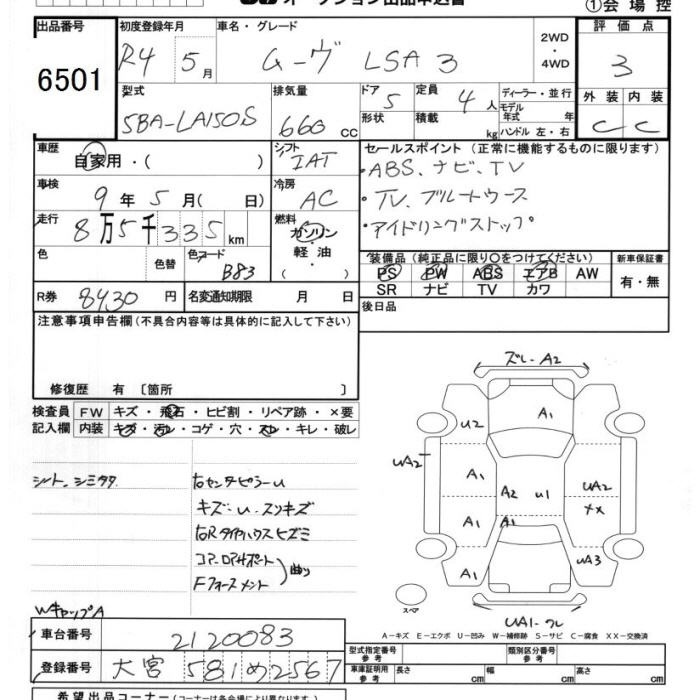 オークション出品申込書
①会場控
出品番号
6501
初度登録年月
R4 5月
車名・グレード
ムーヴ LSA3
2WD
・
4WD
評価点
3
外装 内装
C C
型式
5BA-LA150S
排気量
660 cc
ドア 5
形状
定員 4人
積載 kg
ディーラー・並行
モデル年式 年
ハンドル 左・右
車歴
自家用・( )
シフト
IAT
セールスポイント (正常に機能するものに限ります)
・ABS、ナビ、TV
・TV、ブルートゥース
・アイドリングストップ
車検
9年 5月( 日)
冷房
AC
走行
8万5千335km
燃料
ガソリン・
軽油・
( )
色
色替
色コード
B83
装備品 (純正品に限り○をつけてください)
PS PW ABS エアB AW
SR ナビ TV カワ
新車保証書
有・無
R券 8430円
名変通知期限 月 日
後日品
注意事項申告欄 (不具合内容等は具体的に記入して下さい)
修復歴 有 [箇所 ]
検査員 記入欄
FW キズ・飛石・ヒビ割・リペア跡・×要
内装 キズ・汚レ・コゲ・穴・スレ・キレ・破レ
シート、シミタタ
右センタピラーU
キズ-U、スリキズ
右Rタイヤハウスヒズミ
コアーロアサポート
Fフォースメント
曲り
WキャップA
ズレ-A2
A1
U2
UA2
A1
A2
U1
UA2
××
A1
A1
A1
UA3
スペア
UA1-ワレ
A－キズ E－エクボ U－凹み W－補修跡 S－サビ C－腐食 XX－交換済
車台番号 2120083
登録番号 大宮 581 め 2567
型式指定番号 参考
類別区分番号 参考
車庫証明用 参考 長さ cm 幅 cm 高さ cm
希望出品コーナー (コーナーは各会場により異なります)